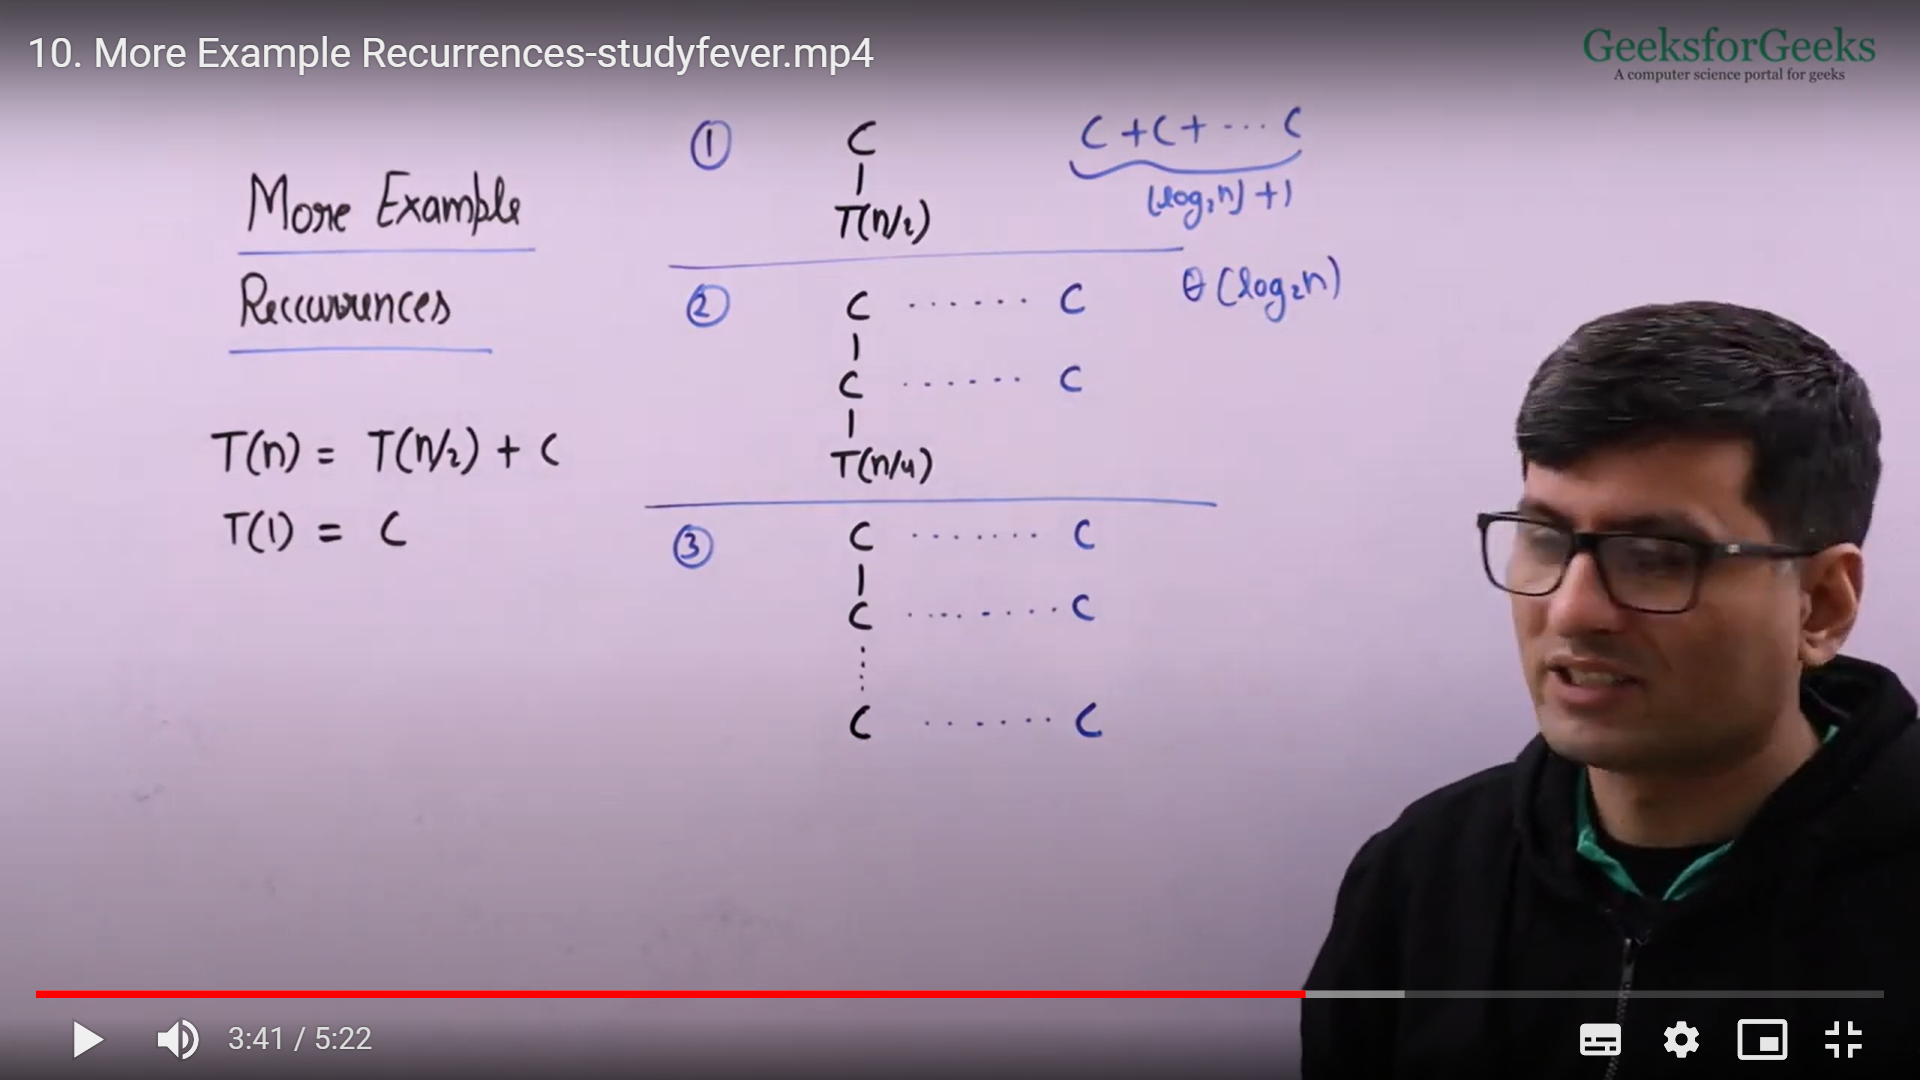 10. More Example Recurrences-studyfever.mp4
GeeksforGeeks
A computer science portal for geeks
More Example
Reccurrences
T(n) = T(n/2) + C
T(1) = C
① C
T(n/2)
C + C + ... C
⌊log₂n⌋ + 1
θ(log₂n)
② C ...... C
C ...... C
T(n/4)
③ C ....... C
C ........ C
C ...... C
3:41 / 5:22